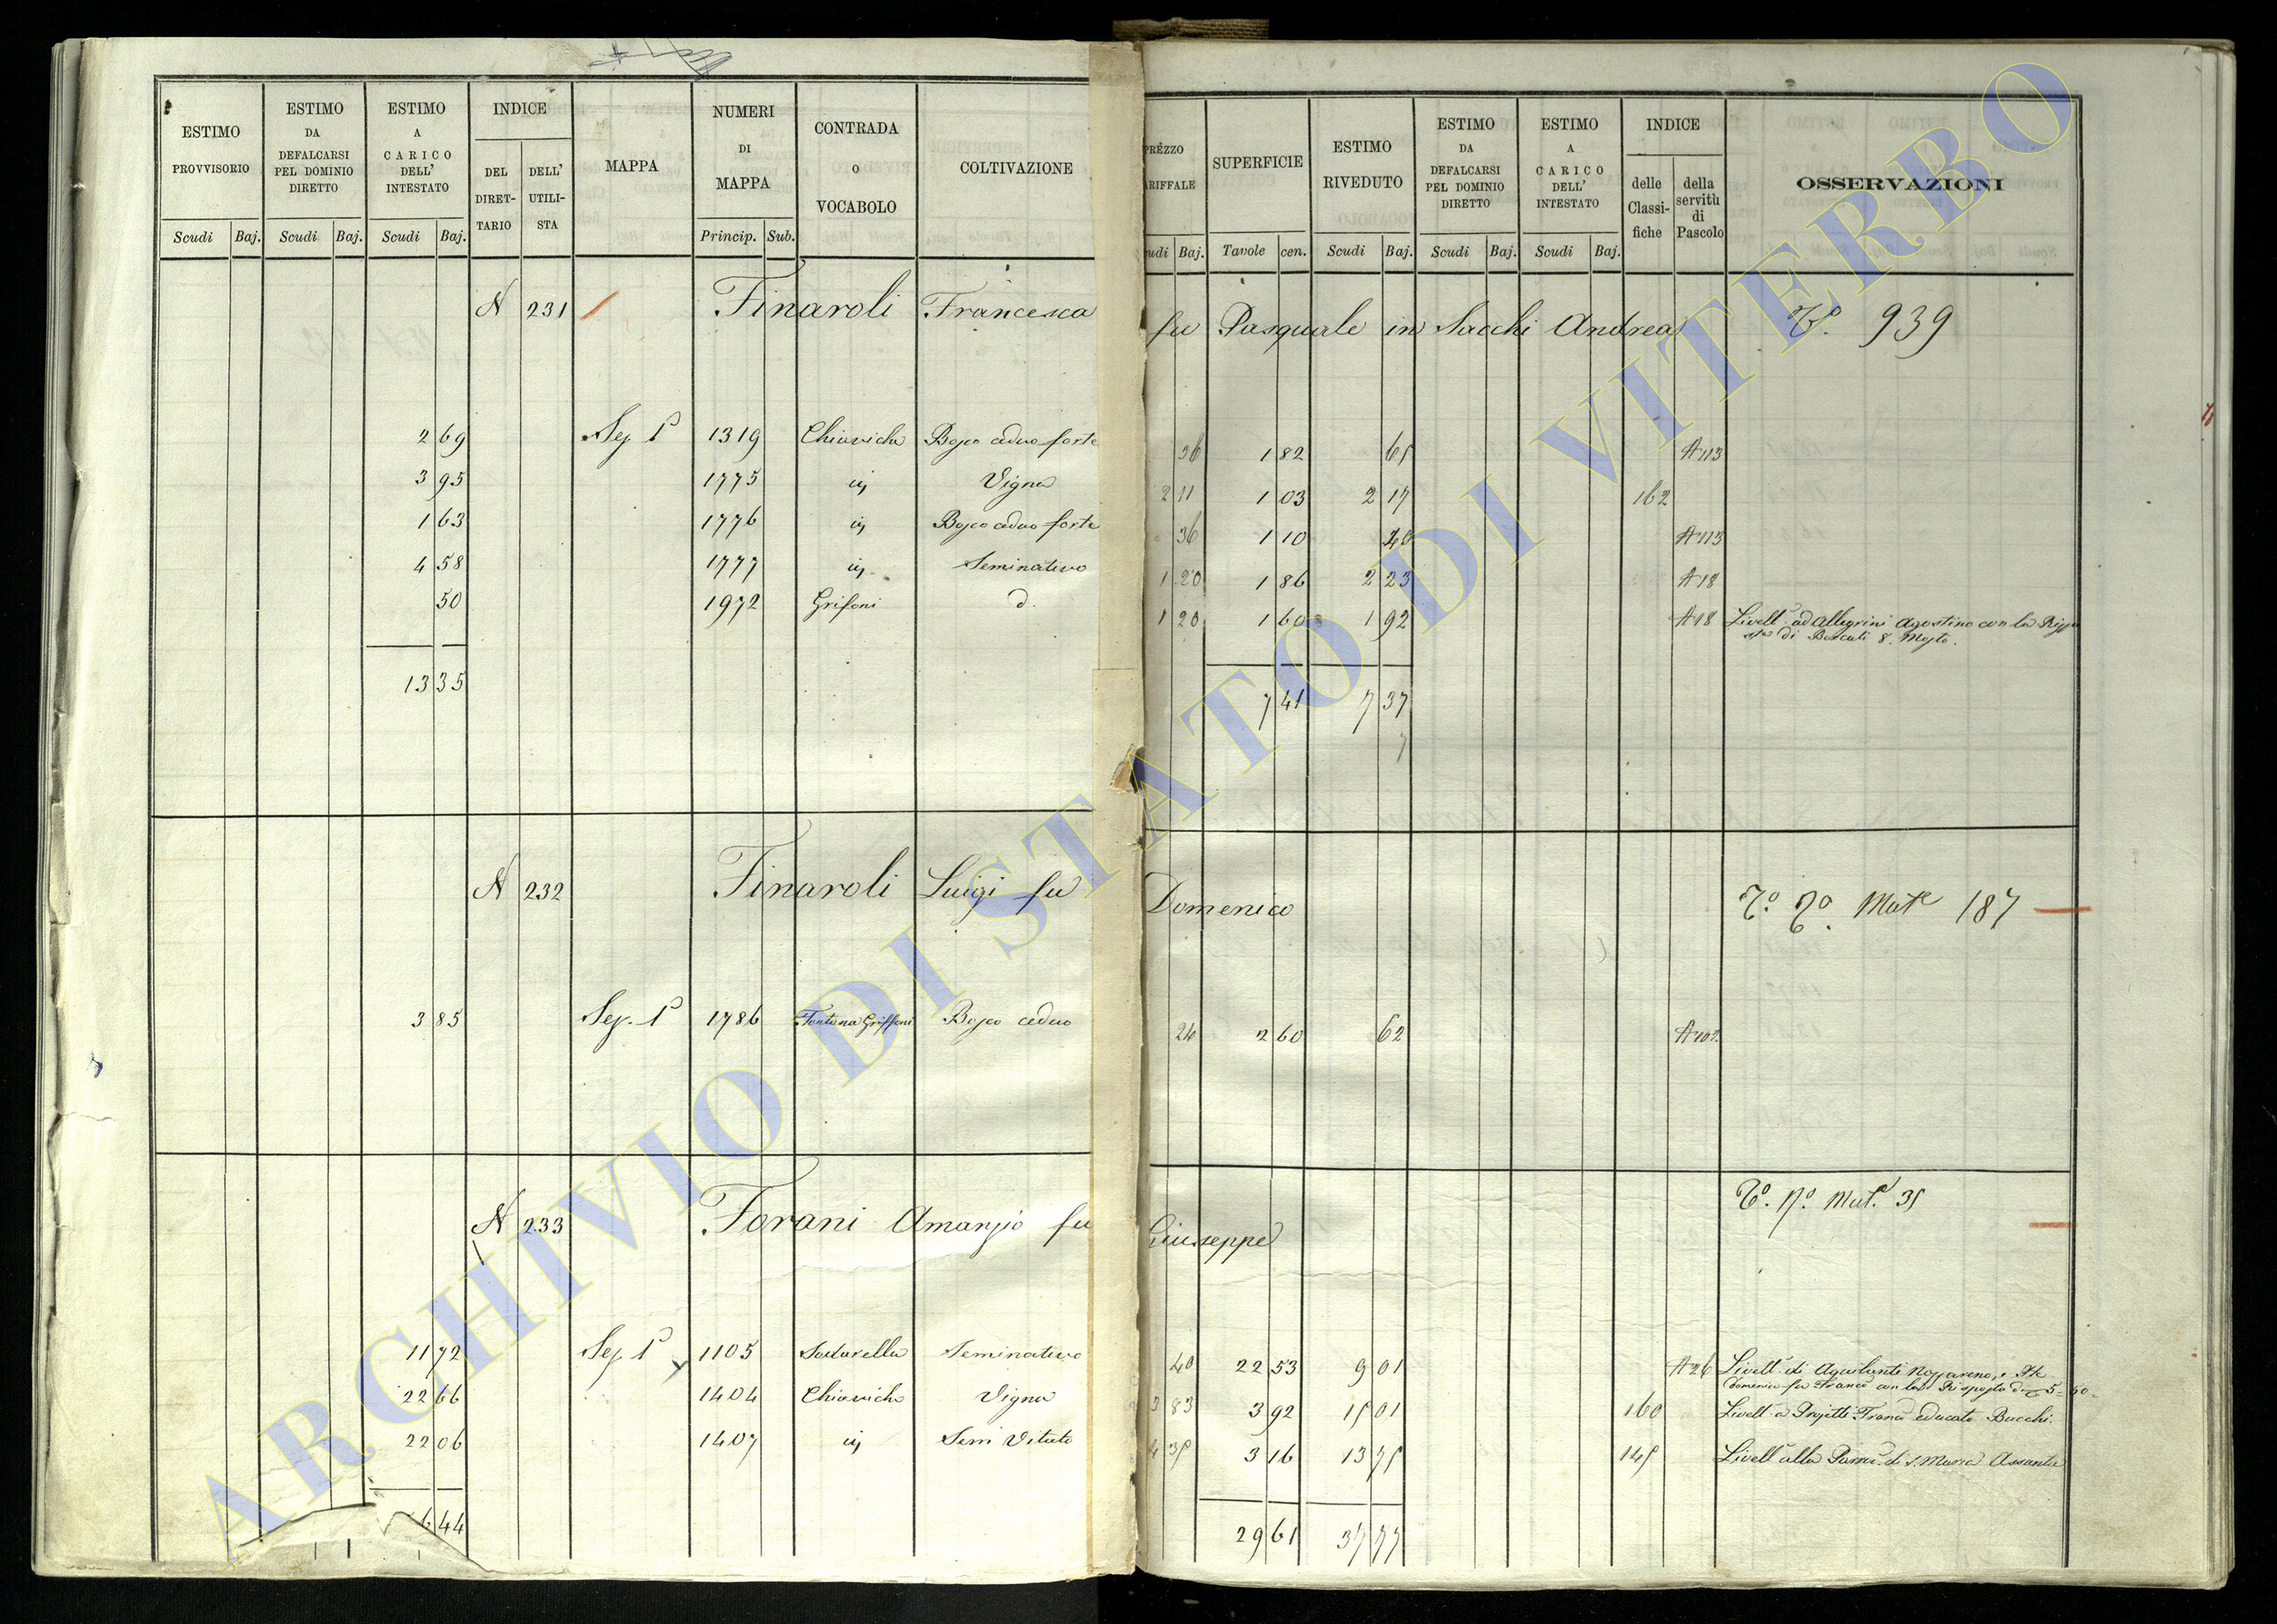 ESTIMO PROVVISORIO Scudi Baj.
ESTIMO DA DEFALCARSI PEL DOMINIO DIRETTO Scudi Baj.
ESTIMO A CARICO DELL' INTESTATO Scudi Baj.
INDICE DEL DIRETTARIO DELL' UTILISTA
MAPPA
NUMERI DI MAPPA Princip. Sub.
CONTRADA O VOCABOLO
COLTIVAZIONE
PREZZO
SUPERFICIE Tavole cen.
ESTIMO RIVEDUTO Scudi Baj.
ESTIMO DA DEFALCARSI PEL DOMINIO DIRETTO Scudi Baj.
ESTIMO A CARICO DELL' INTESTATO Scudi Baj.
INDICE delle Classifiche della servitù di Pascolo
OSSERVAZIONI
N 231 Finaroli Francesca fu Pasquale in Sacchi Andrea 939
2 69 Sez 1ª 1319 Bosco ceduo forte 36 1 82 65 A 113
3 95 1775 Vigna 2 11 1 03 2 17 162
1 63 1776 Bosco ceduo forte 36 1 10 40 A 113
4 58 1777 Seminativo 1 20 1 86 2 23 A 18
50 1972 Grifoni d. 1 20 1 60 1 92 A 18 Livell. ad Allegrini Agostino con la
di Boccali 8. Mosto.
13 35 7 41 7 37
N 232 Finaroli Luigi fu Domenico 187
3 85 Sez. 1ª 1786 Fontana Griffoni Bosco ceduo 24 2 60 62 A 102
N 233 Forani Amanzio fu Giuseppe 35
11 72 Sez 1ª 1105 Sodarella Seminativo 40 22 53 9 01 A 26 Livell. di
con la Risposta di 5=
22 66 1404 Vigna 3 83 3 92 15 01 160 Livell. a Projetti educato
22 06 1407 Semi Vitato 4 35 3 16 13 75 145 Livell alla di S. Maria Assunta
44 29 61 37 77
ARCHIVIO DI STATO DI VITERBO